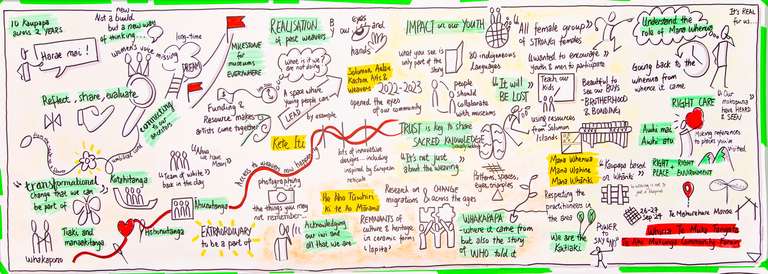 10 Kaupapa
across 2 YEARS
Haerae mai!
new
Not a build
but a new way
of thinking
women's voice missing...
long-time
DREAM
Reflect, share, evaluate
connecting
to our
ancestors
"transformational"
change that we can
be part of
Kotahitanga
"Ahua
we have
Moana"
"Team of waka"
back in the day
Tiaki and
manaakitanga
Whakapono
MILESTONE
for
museums
EVERYWHERE
REALISATION
of past weavers
what is it we
are not doing
A space where
young people can
LEAD
by example
Funding &
Resource makes
artists come together
Kete Iti
Access to weavers now happening
photography
the things you
may not
remember...
EXTRAORDINARY
to be a part of
B our
eyes
and
hands
Solomon
Arts &
Weavers
2022-2023
opened the eyes
of our community
kits of innovative
designs - including
inspired by European
Acknowledging
our iwi and
all that we are
IMPACT in our YOUTH
what you see is
only part of the
story
80 indigenous
languages
people
should
collaborate
with museums
"It will
BE LOST"
TRUST is key to share
SACRED KNOWLEDGE
"It's not just
about the weaving"
Research on CHANGE
migrations & across the ages
REMNANTS of
culture & heritage
in ceramic form
& lapita?
Patterns, spaces,
eyes, triangles
WHAKAPAPA
- where it came from
but also the story
of WHO told it
"All female group"
of STRONG females
Wanted to encourage
youth & men to participate
Teach our
kids
Beautiful to
see our BOYS
- BROTHERHOOD
& BONDING
using resources
from Solomon
Islands
Mana Whenua
Mana Moana
Mana Whānki
"Kaupapa based
on Whānki"
Respecting the
practitioners in
the area
We are the
Kaitiaki
POWER
TO
SAY
Understand the
role of Mana Whenua
It's REAL
for us...
Going back to the
whenua from
where it came
"Our
mokopuna
have HEARD
& SEEN
RIGHT CARE
Awhi mai
Awhi atu
Making references
to places you've
visited
RIGHT
PLACE
RIGHT
ENVIRONMENT
26-29
Sep 24
Te Mahurehure Marae